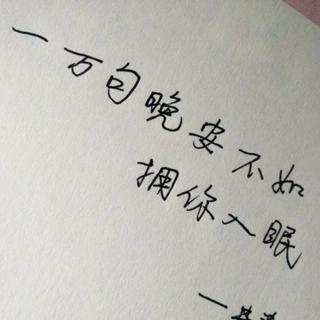 一万句晚安不如
拥你入眠